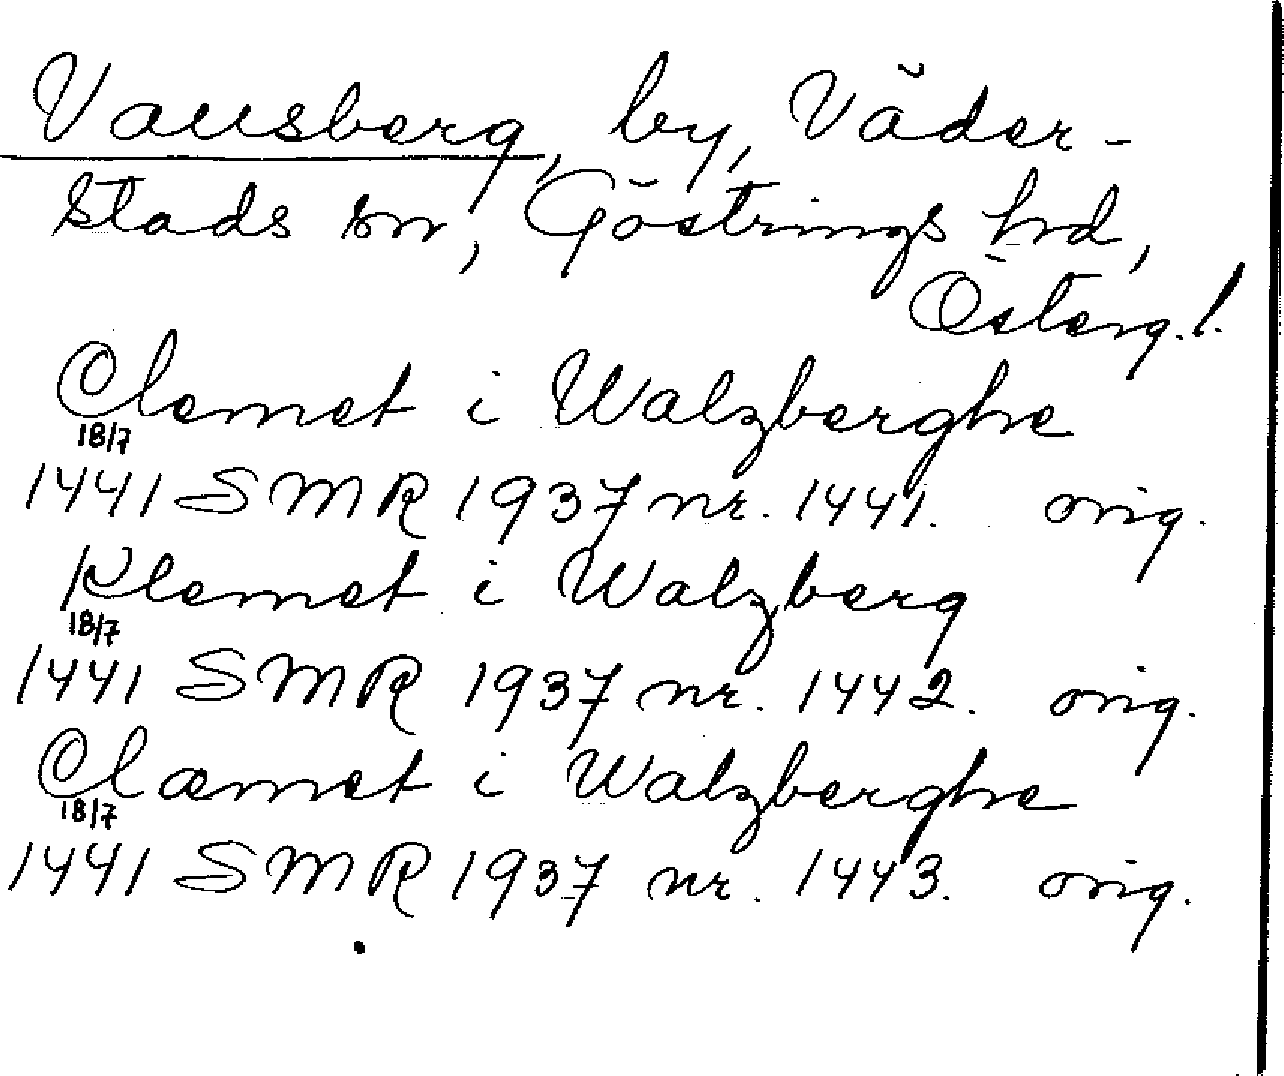 Vallsberg, by, Väder-
stads sn, Göstrings hd,
Österg.l.
Clemet i Walzberghe
18/7
1441 SMR 1937 nr. 1441. orig.
Klemet i Walzberg
18/7
1441 SMR 1937 nr. 1442. orig.
Clæmet i Walzberghe
18/7
1441 SMR 1937 nr. 1443. orig.